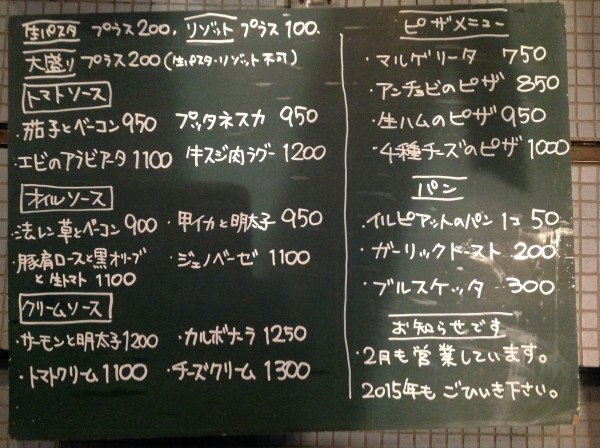 生パスタ プラス200、リゾット プラス100、
大盛り プラス200(生パスタ・リゾット不可)
トマトソース
・茄子とベーコン950 プッタネスカ 950
・エビのアラビアータ1100 牛スジ肉ラグー・1200
オイルソース
・法レン草とベーコン900 ・甲イカと明太子950
・豚肩ロースと黒オリーブ ・ジェノベーゼ1100
と生トマト1100
クリームソース
・サーモンと明太子1200 ・カルボナーラ1250
・トマトクリーム1100 ・チーズクリーム1300
ピザメニュー
・マルゲリータ 750
・アンチョビのピザ 850
・生ハムのピザ 950
・4種チーズのピザ 1000
パン
・イルピアットのパン 1コ 50
・ガーリックトースト 200
・ブルスケッタ 300
お知らせです
・2月も営業しています。
2015年も ごひいき下さい。